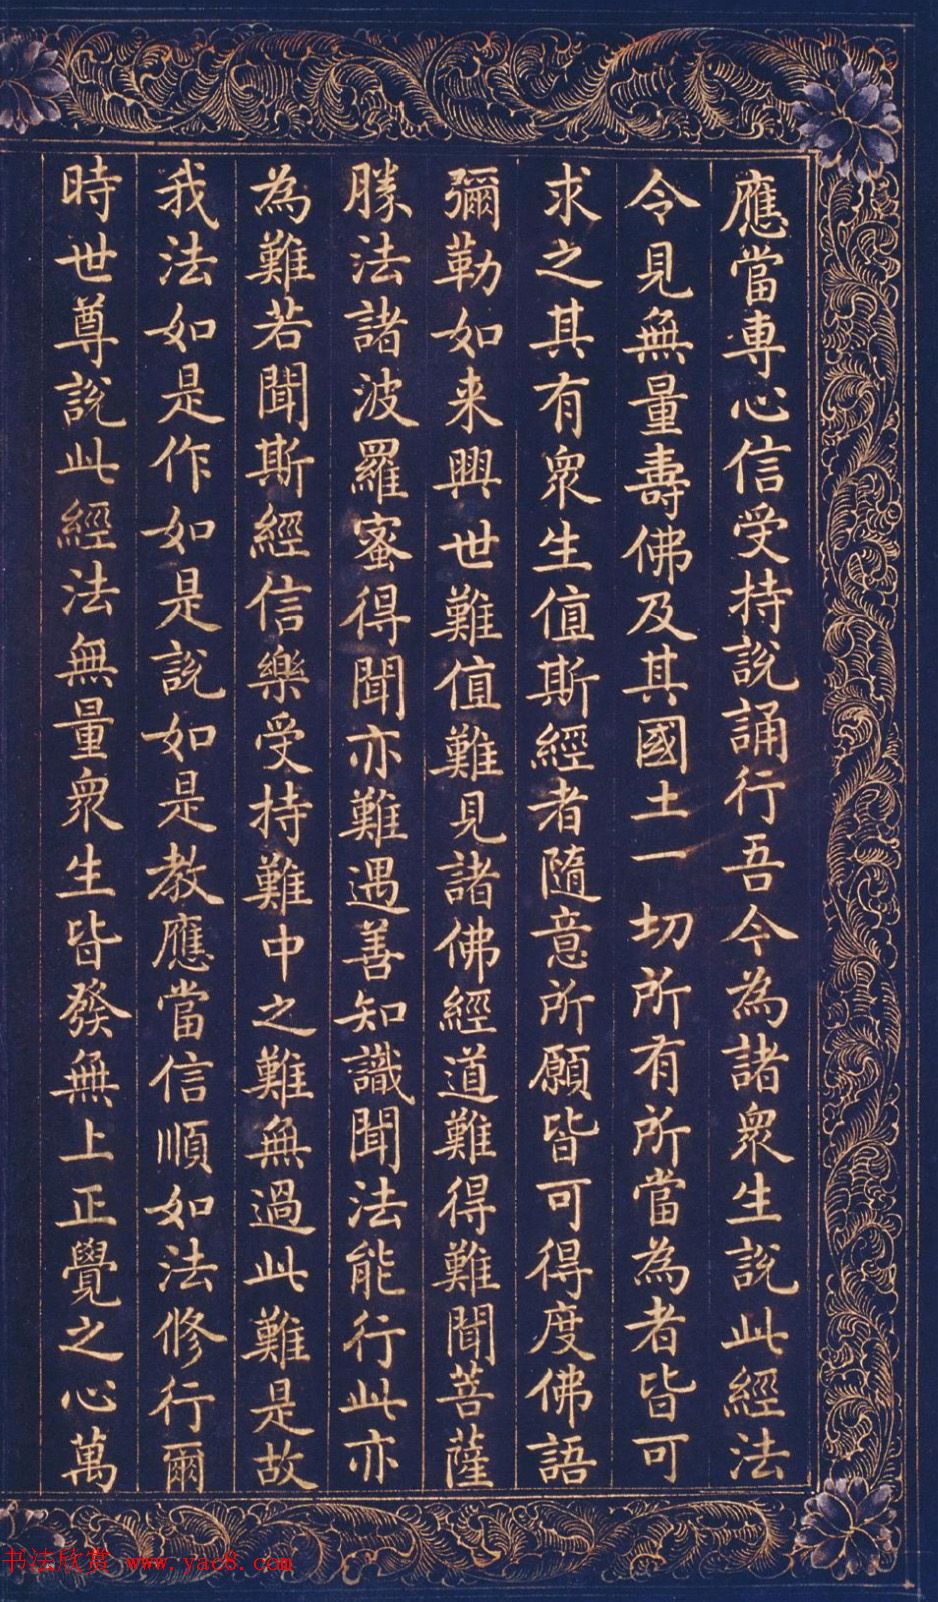 應當專心信受持說誦行吾今為諸衆生說此經法
令見無量壽佛及其國土一切所有所當為者皆可
求之其有衆生值斯經者隨意所願皆可得度佛語
彌勒如来興世難值難見諸佛經道難得難聞菩薩
勝法諸波羅蜜得聞亦難遇善知識聞法能行此亦
為難若聞斯經信樂受持難中之難無過此難是故
我法如是作如是說如是教應當信順如法修行爾
時世尊說此經法無量衆生皆發無上正覺之心萬
书法欣赏 www.yac8.com